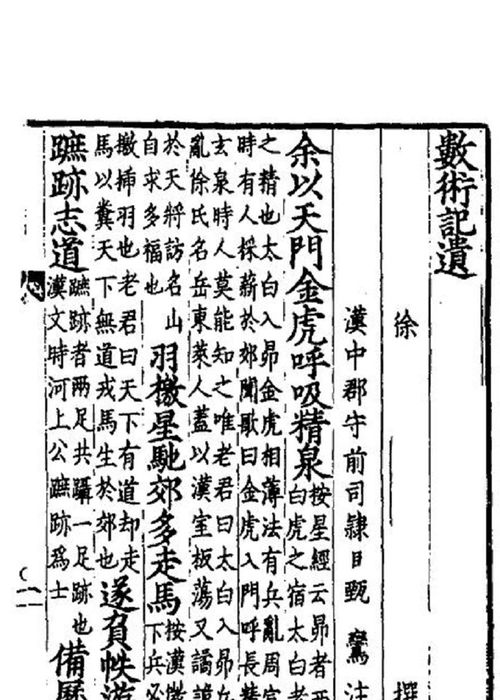 數術記遺
徐 撰
漢中郡守前司隸 甄鸞注
余以天門金虎呼吸精泉 按星經云昴者西
白虎之宿太白者
之精也太白入昴金虎相薄法有兵亂周宣
時有人採薪於郊聞歌曰金虎入門呼長精
玄泉時人莫能知之唯老君曰太白入昴兵
亂徐氏名岳東萊人蓋以漢室板蕩又譎
於天將訪名山
自求多福也
羽檄星馳郊多走馬 按漢
下兵必
檄插羽也老君曰天下有道却走
馬以糞天下無道戎馬生於郊也
遂負帙遊
蹠跡志道 蹠跡者兩足共躡一足跡也
漢文時河上公蹠跡為士
備歷